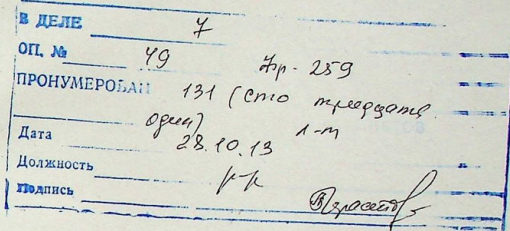 В ДЕЛЕ 7
ОП. № 49 Фр - 259
ПРОНУМЕРОВАН 131 (сто тридцать
один) л-т
Дата 28.10.13
Должность
Подпись